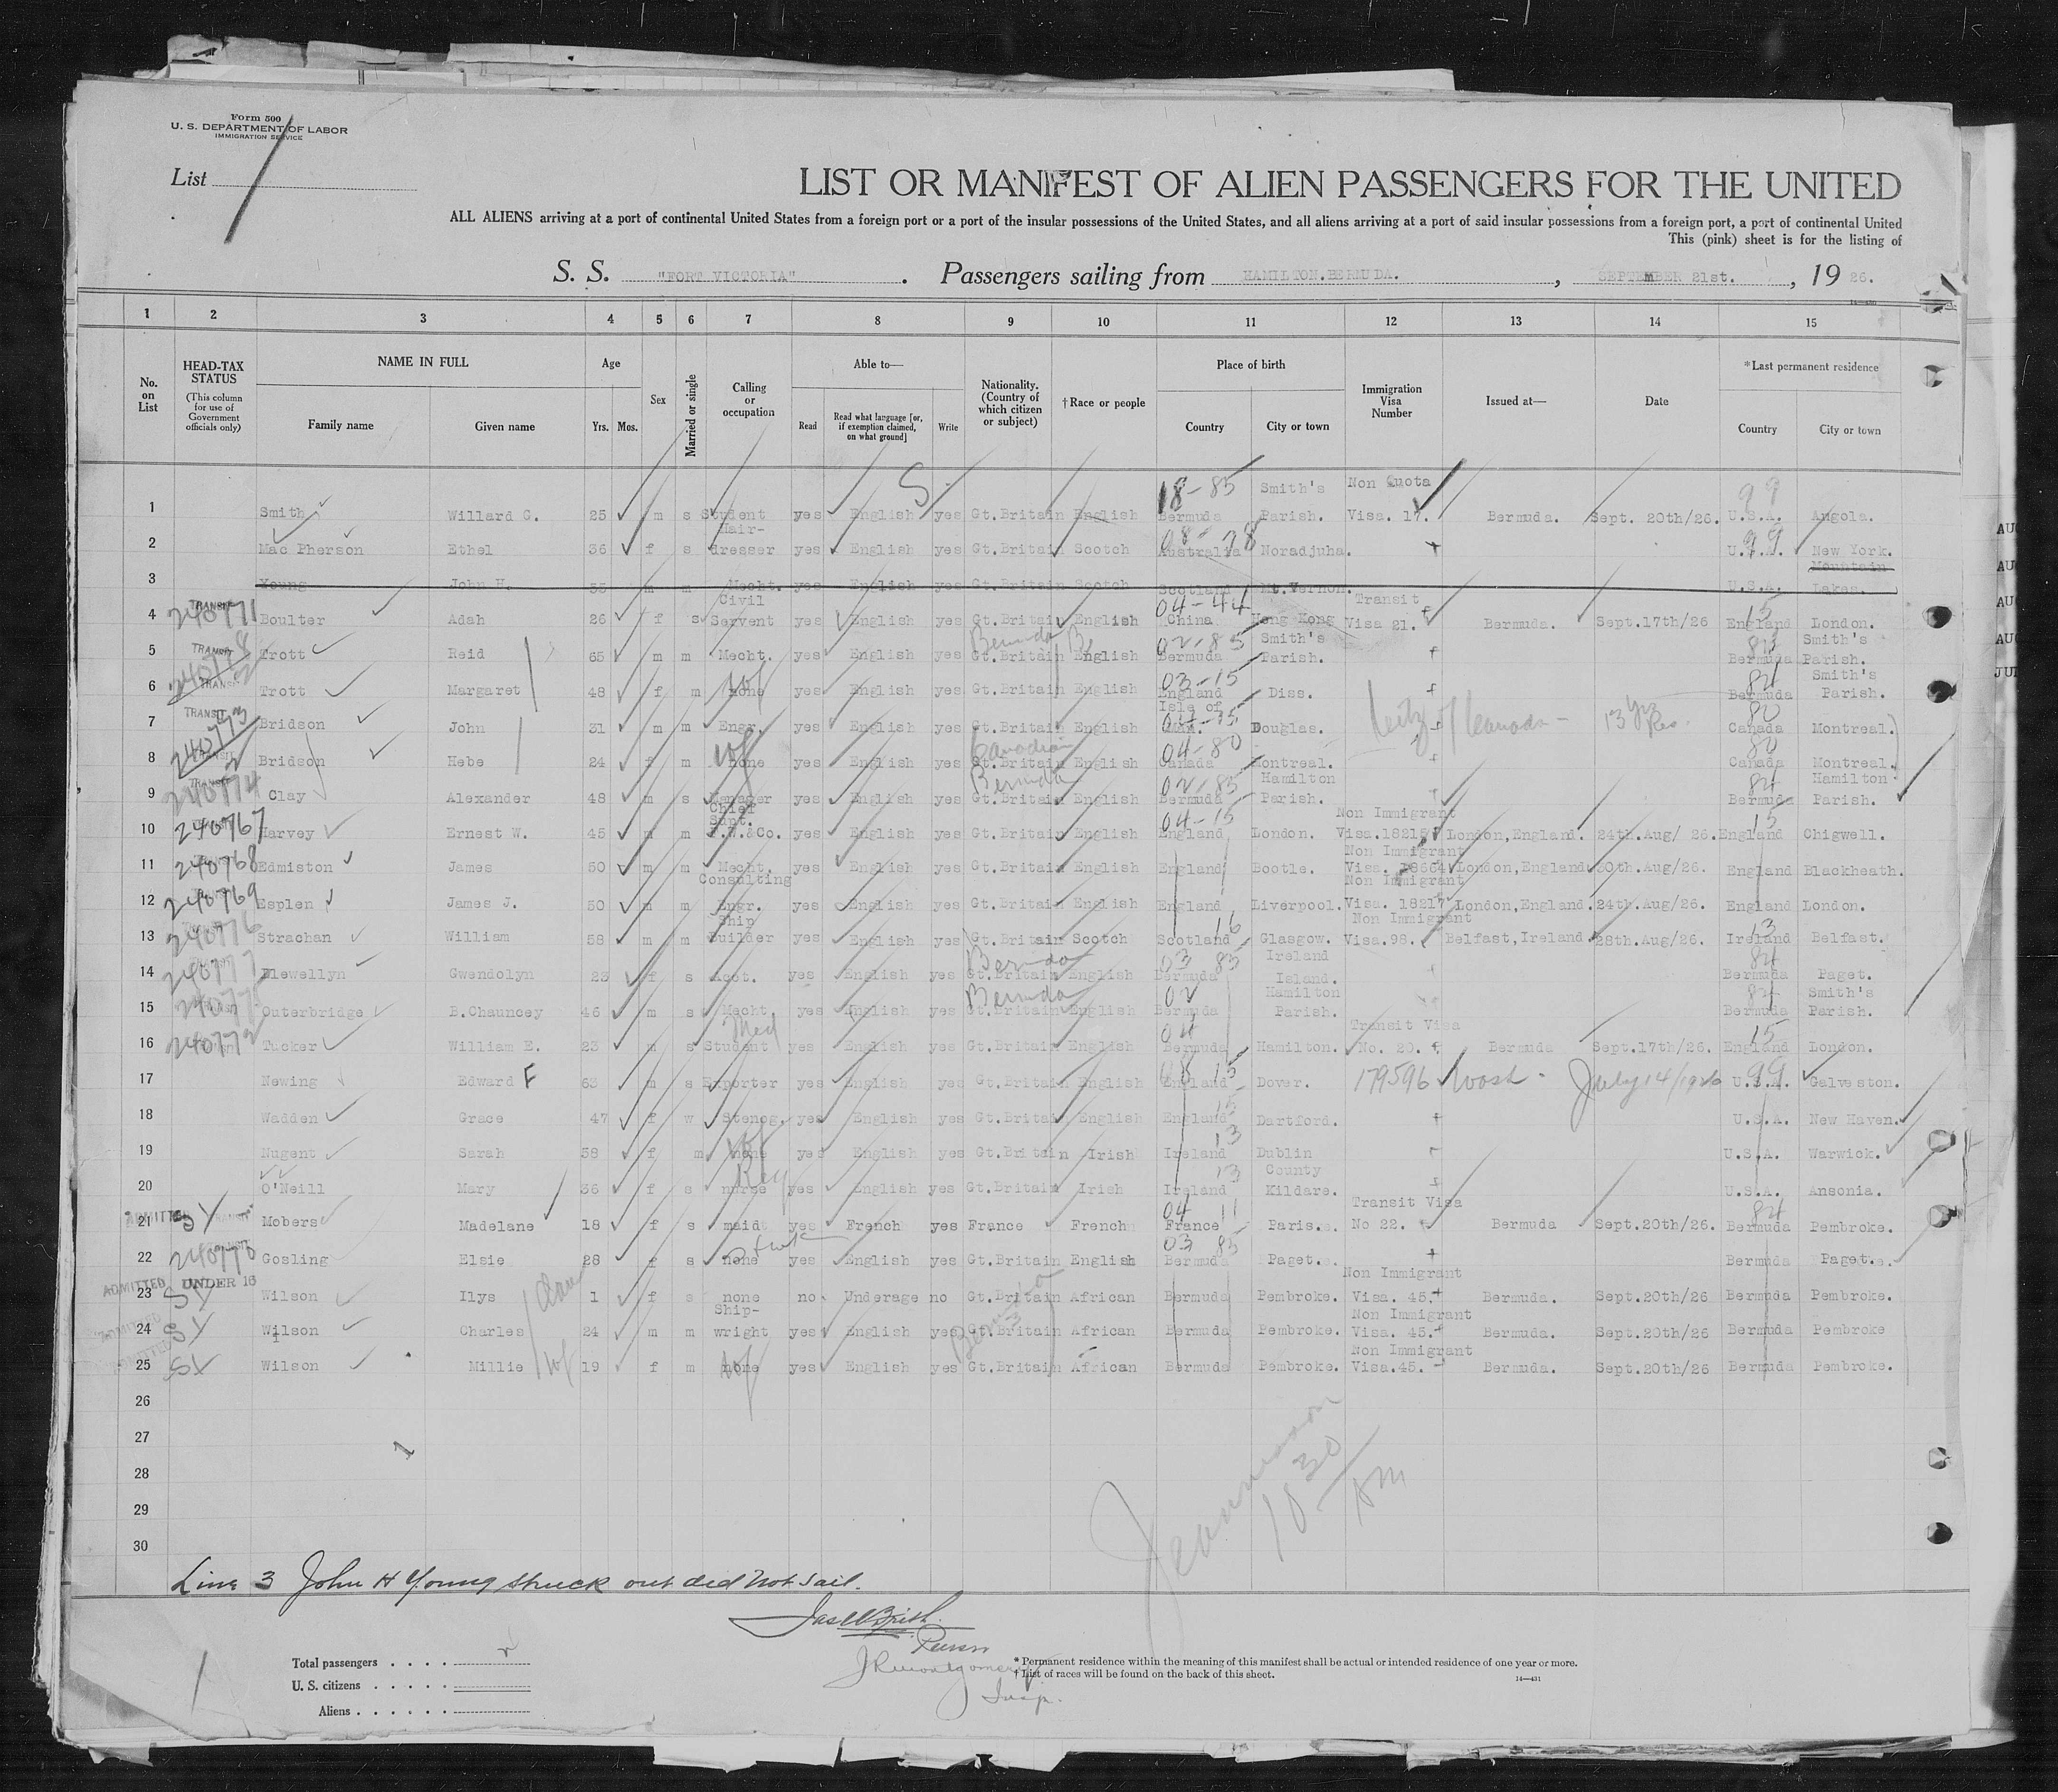 Form 500
U. S. DEPARTMENT OF LABOR
IMMIGRATION SERVICE
List
LIST OR MANIFEST OF ALIEN PASSENGERS FOR THE UNITED
ALL ALIENS arriving at a port of continental United States from a foreign port or a port of the insular possessions of the United States, and all aliens arriving at a port of said insular possessions from a foreign port, a port of continental United
This (pink) sheet is for the listing of
S. S. "FORT VICTORIA". Passengers sailing from HAMILTON.BERMUDA., SEPTEMBER 21st., 19 26.
1 2 3 4 5 6 7 8 9 10 11 12 13 14 15
No. on List
HEAD-TAX STATUS (This column for use of Government officials only)
NAME IN FULL Family name Given name
Age Yrs. Mos.
Sex
Married or single
Calling or occupation
Able to— Read Read what language [or, if exemption claimed, on what ground] Write
Nationality. (Country of which citizen or subject)
†Race or people
Place of birth Country City or town
Immigration Visa Number
Issued at—
Date
*Last permanent residence Country City or town
1 Smith Willard G. 25 m s Student yes English yes Gt.Britain English 18-85 Bermuda Smith's Parish. Non Quota Visa. 17. Bermuda. Sept. 20th/26. 99 U.S.A. Angola.
2 Mac Pherson Ethel 36 f s Hair-dresser yes English yes Gt.Britain Scotch Australia Noradjuha. U.S.A. New York.
3 Young John H. 35 m m Mecht. yes English yes Gt.Britain Scotch Scotland Mt.Vernon. U.S.A. Mountain Lakes.
4 TRANSIT 240771 Boulter Adah 26 f s Civil Servent yes English yes Gt.Britain English 04-44 China Hong Kong Transit Visa 21. Bermuda. Sept.17th/26 15 England London.
5 TRANSIT Trott Reid 65 m m Mecht. yes English yes Bermuda Gt.Britain English 02-85 Bermuda Smith's Parish. Bermuda Smith's Parish.
6 TRANSIT Trott Margaret 48 f m none wf yes English yes Gt.Britain English 03-15 England Diss. 84 Bermuda Smith's Parish.
7 TRANSIT Bridson John 31 m m Engr. yes English yes Gt.Britain English Isle of Man. Douglas. Canada 13 yrs Res. 80 Canada Montreal.
8 240773 Bridson Hebe 24 f m none wf yes English yes Canadian Gt.Britain English 04-80 Canada Montreal. 80 Canada Montreal.
9 240774 Clay Alexander 48 m s Manager yes English yes Bermuda Gt.Britain English 02-85 Bermuda Hamilton Parish. 84 Bermuda Hamilton Parish.
10 240767 Harvey Ernest W. 45 m m Chief Supt. &Co. yes English yes Gt.Britain English 04-15 England London. Non Immigrant London,England. 24th.Aug/ 26. 15 England Chigwell.
11 240768 Edmiston James 50 m m Mecht. yes English yes Gt.Britain English England Bootle. Non Immigrant London,England. England Blackheath.
12 240769 Esplen James J. 50 m m Consulting Engr. yes English yes Gt.Britain English England Liverpool. Non Immigrant Visa. 18217 London,England. 24th.Aug/26. England London.
13 240776 Strachan William 58 m m Ship Builder yes English yes Gt.Britain Scotch 16 Scotland Glasgow. Non Immigrant Visa.98. Belfast,Ireland. 28th.Aug/26. 13 Ireland Belfast.
14 Llewellyn Gwendolyn 23 f s Acct. yes English yes Bermuda Gt.Britain English 03 85 Bermuda Ireland Island. 84 Bermuda Paget.
15 Outerbridge B.Chauncey 46 m s Mecht. yes English yes Bermuda Gt.Britain English 02 Bermuda Hamilton Parish. 84 Bermuda Smith's Parish.
16 240772 Tucker William E. 23 m s Med Student yes English yes Gt.Britain English 04 Bermuda Hamilton. Transit Visa No. 20. Bermuda Sept.17th/26. 15 England London.
17 Newing Edward F 63 m s Exporter yes English yes Gt.Britain English 15 England Dover. 179596 Wash. July 14/1926 99 U.S.A. Galveston.
18 Wadden Grace 47 f w Stenog. yes English yes Gt.Britain English 15 England Dartford. U.S.A. New Haven.
19 Nugent Sarah 58 f m none wf yes English yes Gt.Britain Irish 13 Ireland Dublin U.S.A. Warwick.
20 O'Neill Mary 36 f s Reg nurse yes English yes Gt.Britain Irish 13 Ireland County Kildare. U.S.A. Ansonia.
21 ADMITTED SY Mobers Madelane 18 f s maid yes French yes France French 04 11 France Paris. Transit Visa No 22. Bermuda Sept.20th/26. 84 Bermuda Pembroke.
22 240770 Gosling Elsie 28 f s none yes English yes Gt.Britain English 03 85 Bermuda Paget. Bermuda Paget.
23 ADMITTED UNDER 16 SY Wilson Ilys 1 f s none no. Underage no Gt.Britain African Bermuda Pembroke. Non Immigrant Visa. 45. Bermuda. Sept.20th/26 Bermuda Pembroke.
24 ADMITTED SY Wilson Charles 24 m m Ship-wright yes English yes Gt.Britain African Bermuda Pembroke. Non Immigrant Visa. 45. Bermuda. Sept.20th/26 Bermuda Pembroke
25 SY Wilson Millie wf 19 f m none wf yes English yes Gt.Britain African Bermuda Pembroke. Non Immigrant Visa.45. Bermuda. Sept.20th/26 Bermuda Pembroke.
26
27
28
29
30
10 30 AM
Line 3 John H Young struck out did not sail.
Purser
J R Montgomery
Insp.
Total passengers
U. S. citizens
Aliens
* Permanent residence within the meaning of this manifest shall be actual or intended residence of one year or more.
† List of races will be found on the back of this sheet.
14—431